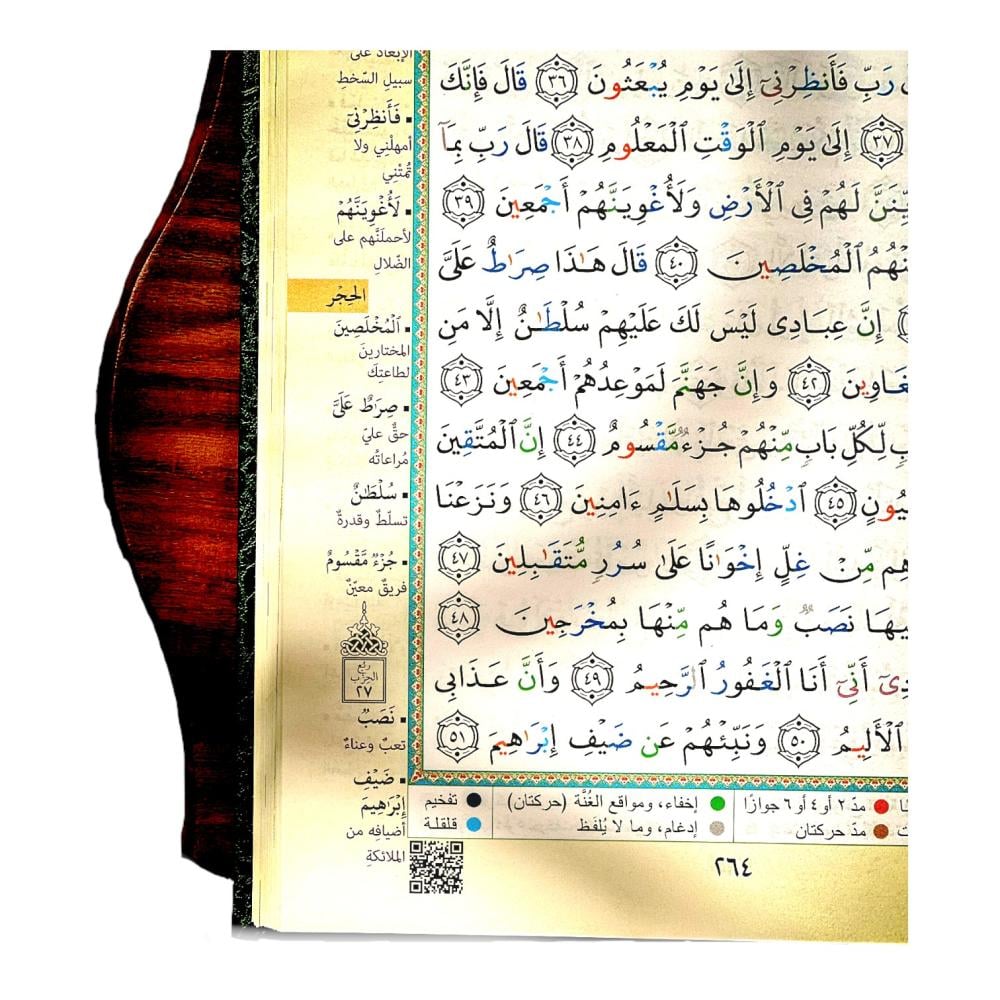 رَبِّ فَأَنظِرْنِىٓ إِلَىٰ يَوْمِ يُبْعَثُونَ ٣٦ قَالَ فَإِنَّكَ
٣٧ إِلَىٰ يَوْمِ ٱلْوَقْتِ ٱلْمَعْلُومِ ٣٨ قَالَ رَبِّ بِمَآ
لَهُمْ فِى ٱلْأَرْضِ وَلَأُغْوِيَنَّهُمْ أَجْمَعِينَ ٣٩
ٱلْمُخْلَصِينَ ٤٠ قَالَ هَـٰذَا صِرَٰطٌ عَلَىَّ
إِنَّ عِبَادِى لَيْسَ لَكَ عَلَيْهِمْ سُلْطَـٰنٌ إِلَّا مَنِ
٤٢ وَإِنَّ جَهَنَّمَ لَمَوْعِدُهُمْ أَجْمَعِينَ ٤٣
لِّكُلِّ بَابٍ مِّنْهُمْ جُزْءٌ مَّقْسُومٌ ٤٤ إِنَّ ٱلْمُتَّقِينَ
٤٥ ٱدْخُلُوهَا بِسَلَـٰمٍ ءَامِنِينَ ٤٦ وَنَزَعْنَا
مِّنْ غِلٍّ إِخْوَٰنًا عَلَىٰ سُرُرٍ مُّتَقَـٰبِلِينَ ٤٧
نَصَبٌ وَمَا هُم مِّنْهَا بِمُخْرَجِينَ ٤٨
أَنِّىٓ أَنَا ٱلْغَفُورُ ٱلرَّحِيمُ ٤٩ وَأَنَّ عَذَابِى
ٱلْأَلِيمُ ٥٠ وَنَبِّئْهُمْ عَن ضَيْفِ إِبْرَٰهِيمَ ٥١
الإبعاد على
سبيل السّخط
▪ فَأَنظِرْنِىٓ
أمهلْني ولا
تُمتْني
▪ لَأُغْوِيَنَّهُمْ
لأحملنَّهم على
الضّلالِ
الحِجْر
▪ ٱلْمُخْلَصِينَ
المختارينَ
لطاعتِك
▪ صِرَٰطٌ عَلَىَّ
حقٌّ عليَ
مُراعاتُه
▪ سُلْطَـٰنٌ
تسلّطٌ وقدرةٌ
▪ جُزْءٌ مَّقْسُومٌ
فريقٌ معيّنٌ
ربع
الحزب
٢٧
▪ نَصَبٌ
تعبٌ وعناءٌ
▪ ضَيْفِ
إِبْرَٰهِيمَ
أضيافِه من
الملائكةِ
مدّ ٢ أو ٤ أو ٦ جوازًا
مدّ حركتان
إخفاء، ومواقع الغُنَّة (حركتان)
إدغام، وما لا يُلفَظ
تفخيم
قلقلة
٢٦٤